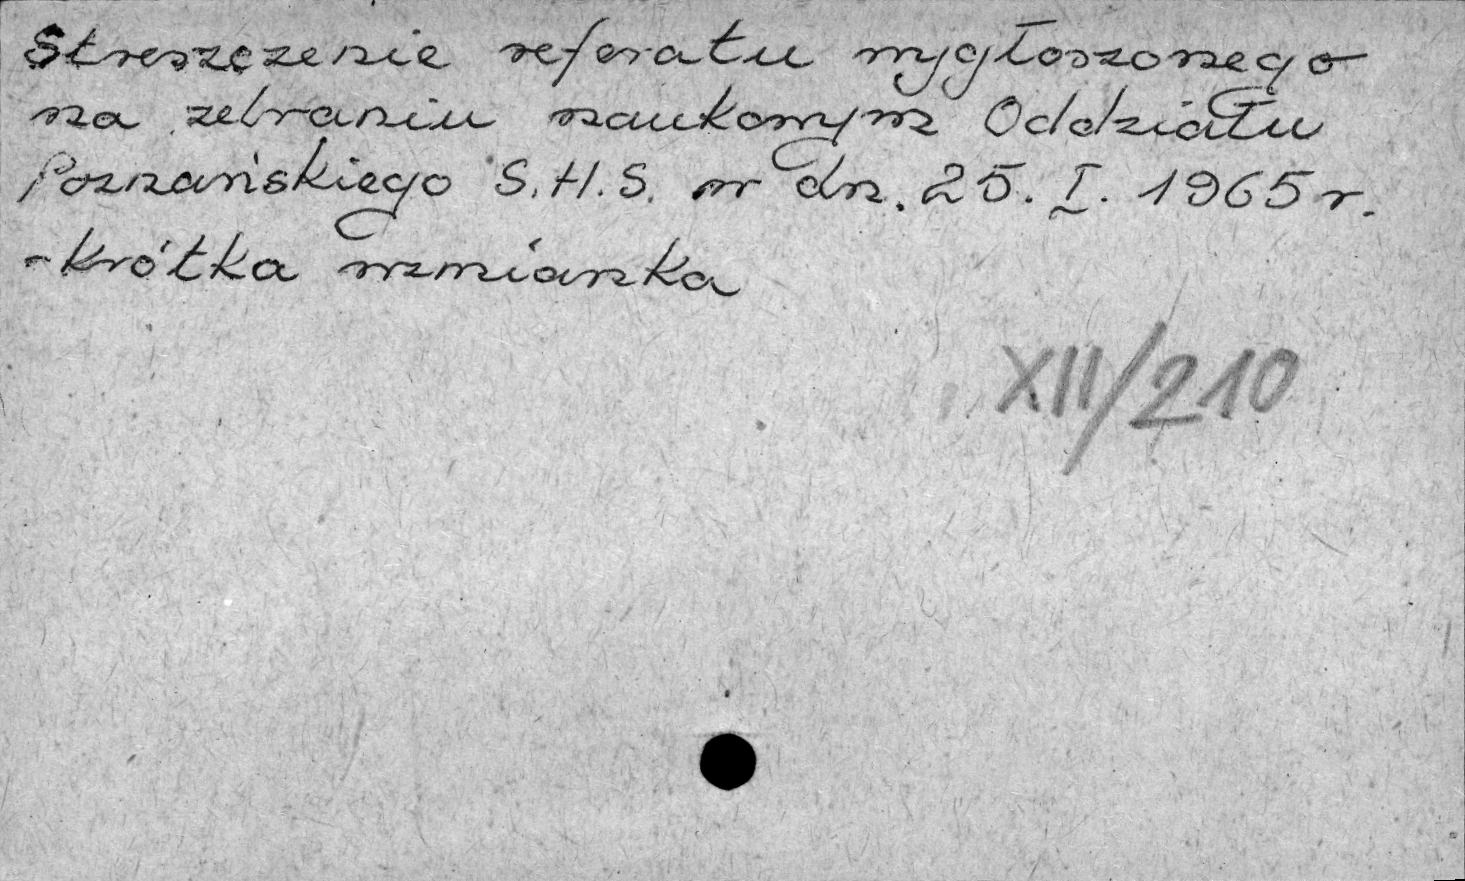 Streszczenie referatu wygłoszonego
na zebraniu naukowym Oddziału
Poznańskiego S.H.S. w dn. 25. I. 1965 r.
- krótka wzmianka
XII/210